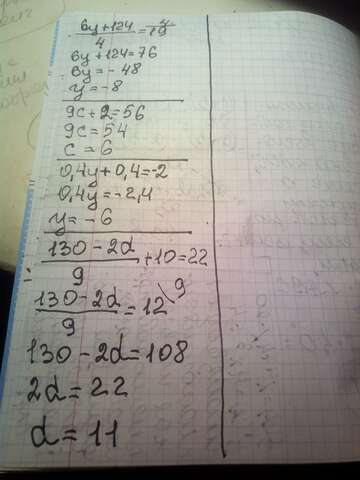 6y+124/4=19 \4
6y+124=76
6y=-48
y=-8
9c+2=56
9c=54
c=6
0,4y+0,4=-2
0,4y=-2,4
y=-6
130-2d/9+10=22
130-2d/9=12 \9
130-2d=108
2d=22
d=11